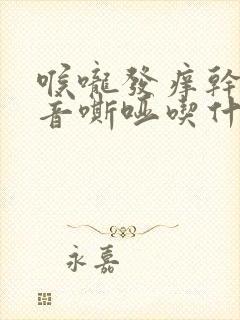 喉嚨發痒幹
音嘶啞喫什
永嘉